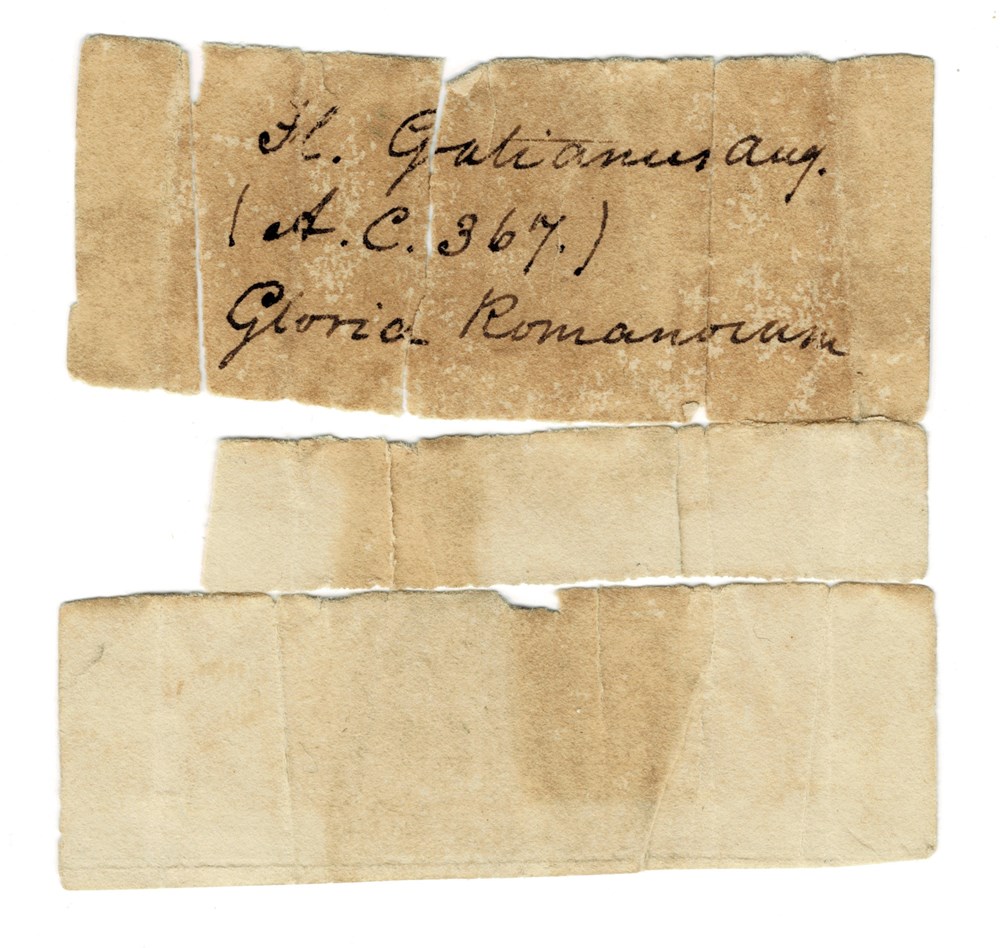 Fl. Gatianus Aug.
(A.C. 367.)
Gloria Romanorum